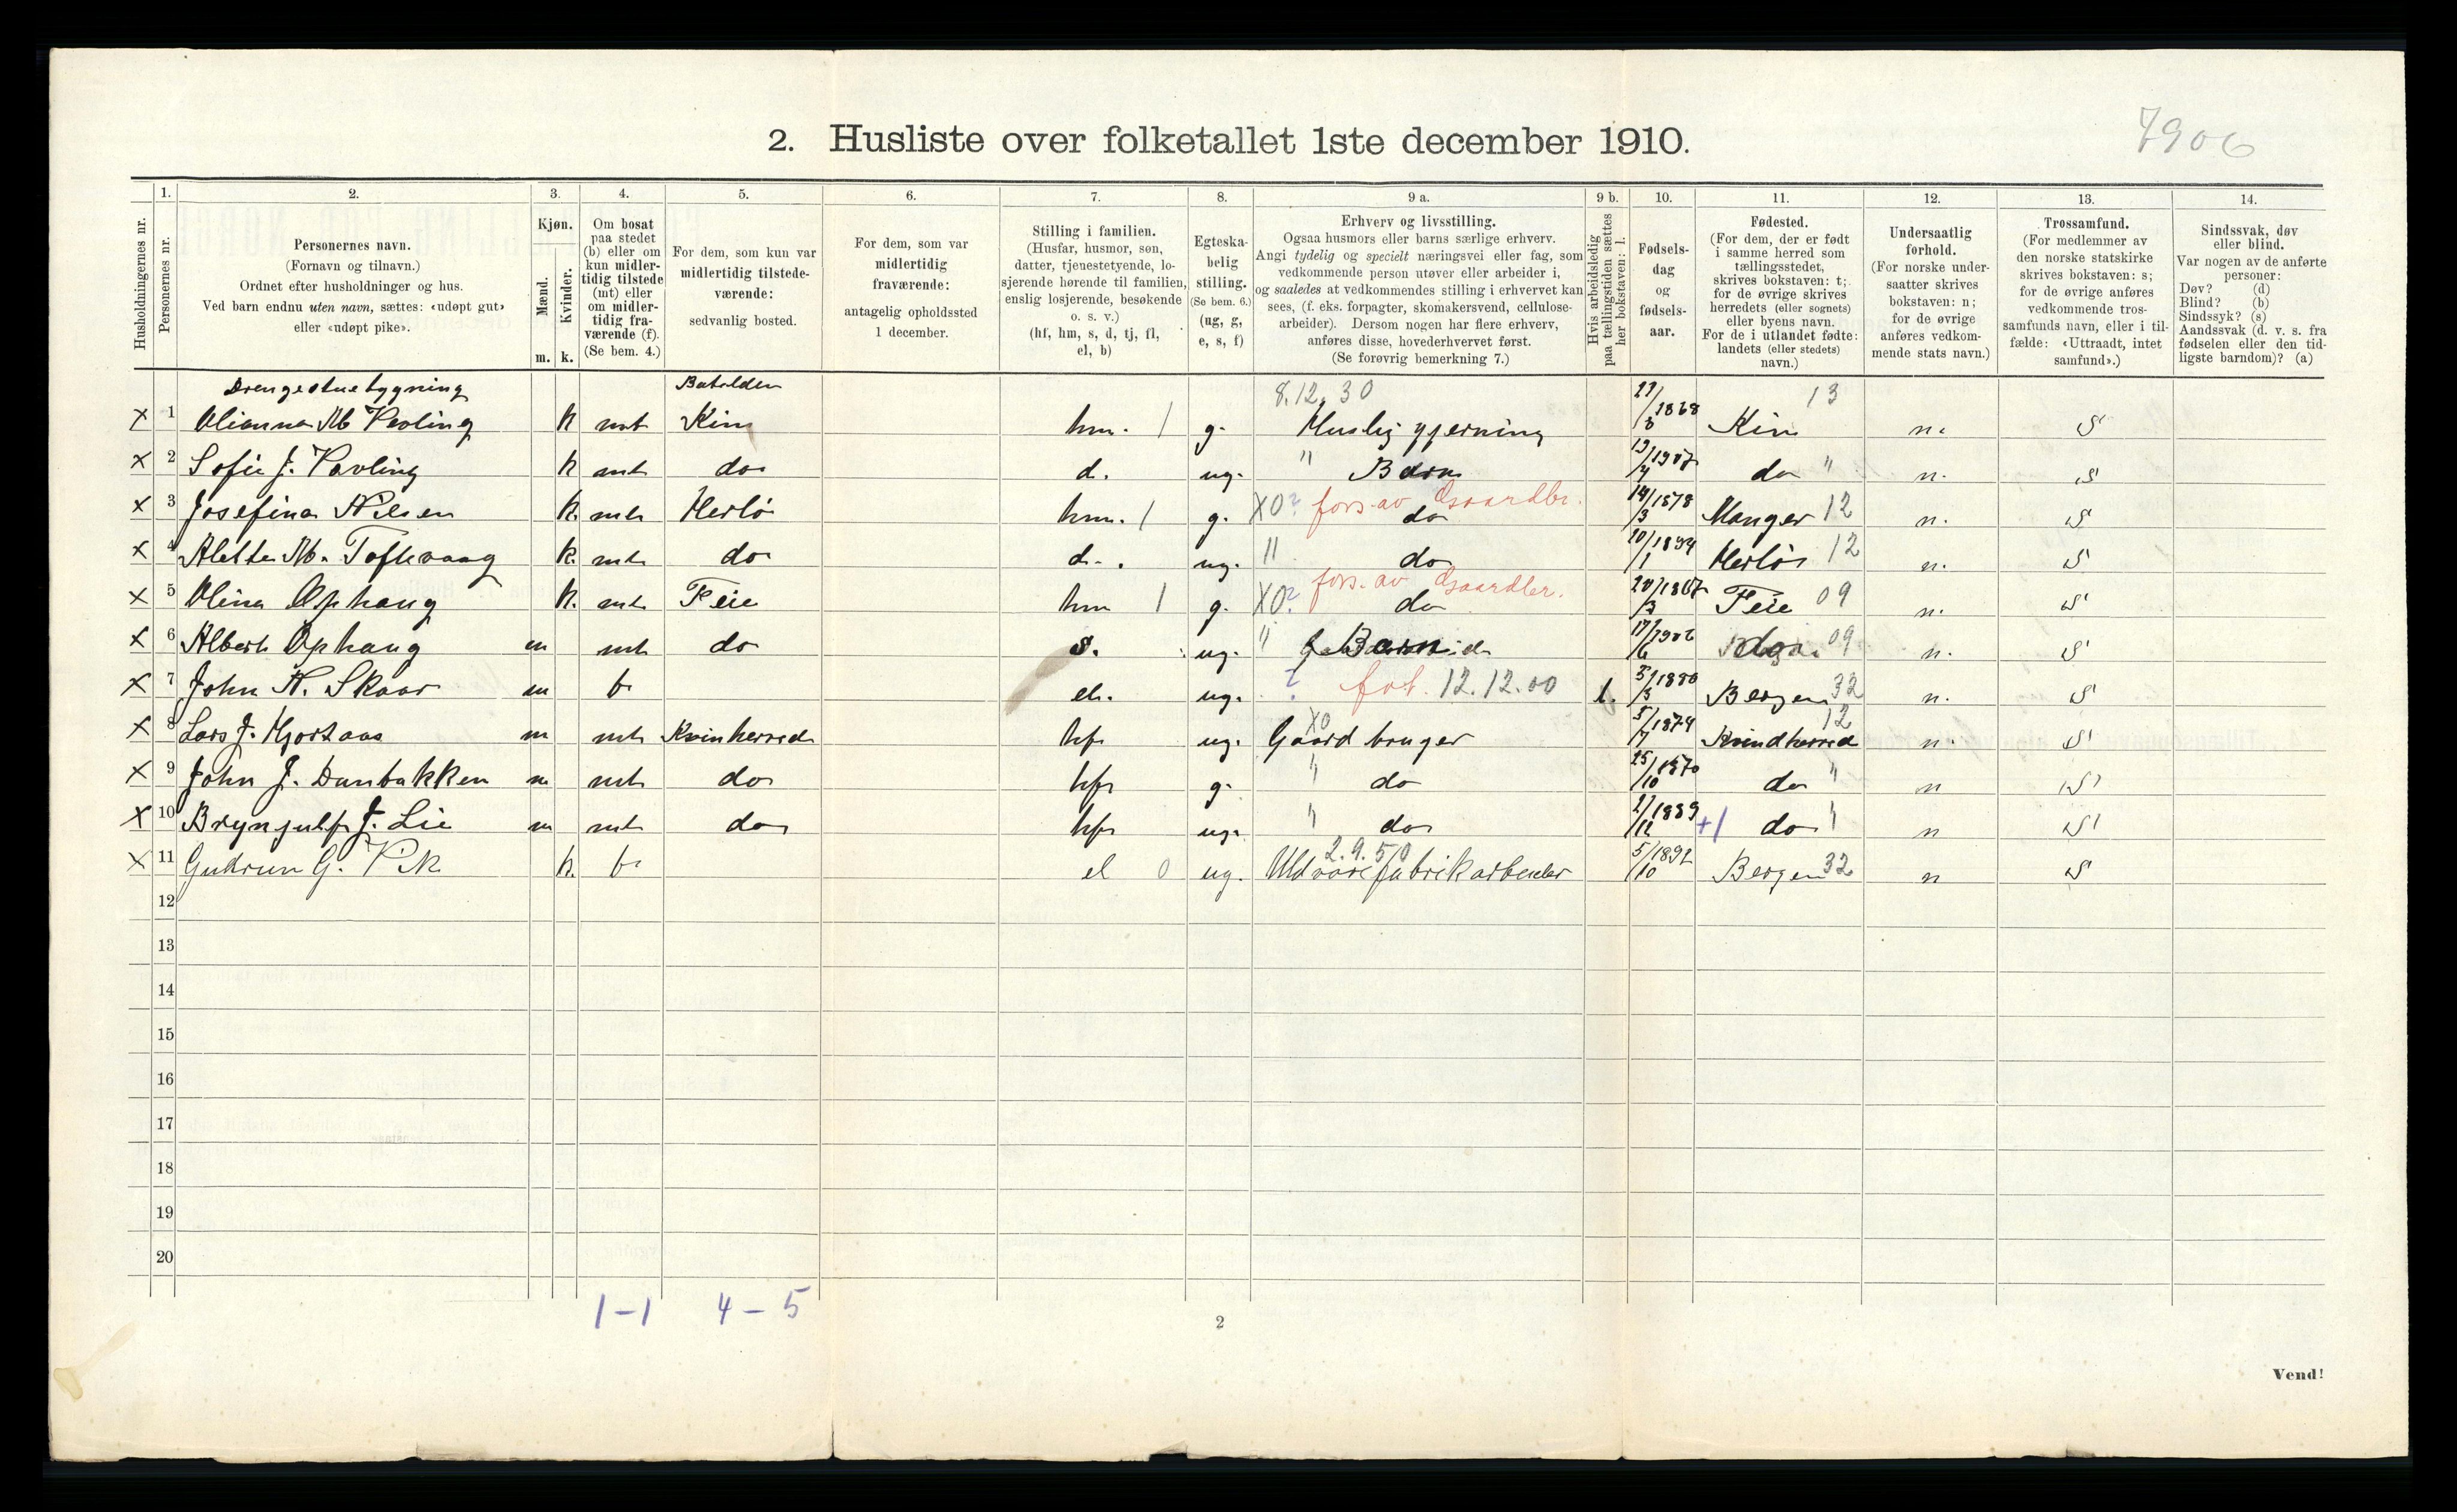 7906
2. Husliste over folketallet 1ste december 1910.
1. 2. 3. 4. 5. 6. 7. 8. 9 a. 9 b. 10. 11. 12. 13. 14.
Husholdningernes nr.
Personernes nr.
Personernes navn.
(Fornavn og tilnavn.)
Ordnet efter husholdninger og hus.
Ved barn endnu uten navn, sættes: «udøpt gut»
eller «udøpt pike».
Kjøn.
Mænd.
Kvinder.
m. k.
Om bosat
paa stedet
(b) eller om
kun midler-
tidig tilstede
(mt) eller
om midler-
tidig fra-
værende (f).
(Se bem. 4.)
For dem, som kun var
midlertidig tilstede-
værende:
sedvanlig bosted.
For dem, som var
midlertidig
fraværende:
antagelig opholdssted
1 december.
Stilling i familien.
(Husfar, husmor, søn,
datter, tjenestetyende, lo-
sjerende hørende til familien,
enslig losjerende, besøkende
o. s. v.)
(hf, hm, s, d, tj, fl,
el, b)
Egteska-
belig
stilling.
(Se bem. 6.)
(ug, g,
e, s, f)
Erhverv og livsstilling.
Ogsaa husmors eller barns særlige erhverv.
Angi tydelig og specielt næringsvei eller fag, som
vedkommende person utøver eller arbeider i,
og saaledes at vedkommendes stilling i erhvervet kan
sees, (f. eks. forpagter, skomakersvend, cellulose-
arbeider). Dersom nogen har flere erhverv,
anføres disse, hovederhvervet først.
(Se forøvrig bemerkning 7.)
Hvis arbeidsledig
paa tællingstiden sættes
her bokstaven: l.
Fødsels-
dag
og
fødsels-
aar.
Fødested.
(For dem, der er født
i samme herred som
tællingsstedet,
skrives bokstaven: t;
for de øvrige skrives
herredets (eller sognets)
eller byens navn.
For de i utlandet fødte:
landets (eller stedets)
navn.)
Undersaatlig
forhold.
(For norske under-
saatter skrives
bokstaven: n;
for de øvrige
anføres vedkom-
mende stats navn.)
Trossamfund.
(For medlemmer av
den norske statskirke
skrives bokstaven: s;
for de øvrige anføres
vedkommende tros-
samfunds navn, eller i til-
fælde: «Uttraadt, intet
samfund».)
Sindssvak, døv
eller blind.
Var nogen av de anførte
personer:
Døv? (d)
Blind? (b)
Sindssyk? (s)
Aandssvak (d. v. s. fra
fødselen eller den tid-
ligste barndom)? (a)
Drengestuebygning Batalden 8.12.30 13
x 1 Olianna M Vevling k mt Kin hm. 1 g. Huslig gjerning 1868 Kin n. s
x 2 Sofie J. Vevling k mt do d. ug. " Barn 13/4 1907 do " n. s
x 3 Josefina Nilsen k. mt Herlø hm. 1 g. X0? fors. av Gaardbr. do 14/3 1878 Manger 12 n. s
x 4 Alette M. Toftevaag k. mt do d. ug. " do 20/1 1894 Herlø 12 n. s
x 5 Olina Ophaug k. mt Feie hm 1 g. X0? fors. av Gaardbr. do 20/3 1867 Feie 09 n. s
x 6 Albert Ophaug m mt do s. ug. " Barn 17/6 1906 do 09 n. s
x 7 John N. Skaar m b el. ug. ? fot. 12.12.00 l. 5/5 1880 Bergen 32 n. s
x 8 Lars J. Hjortaas m mt Kvinherred hf ug. X0 Gaardbruger 5/7 1874 Kvindherred 12 n. s
x 9 John J. Dunbakken m mt do hf g. " do 25/10 1870 do " n s
x 10 Brynjulf J. Lie m mt do hf ug. " do 2/12 1889 +1 do " n s
x 11 Gudrun G. Vik k. b el 0 ug. 2.9.50 Uldvarefabrikarbeider 5/10 1892 Bergen 32 n s
12
13
14
15
16
17
18
19
20
1-1 4-5
2
Vend!